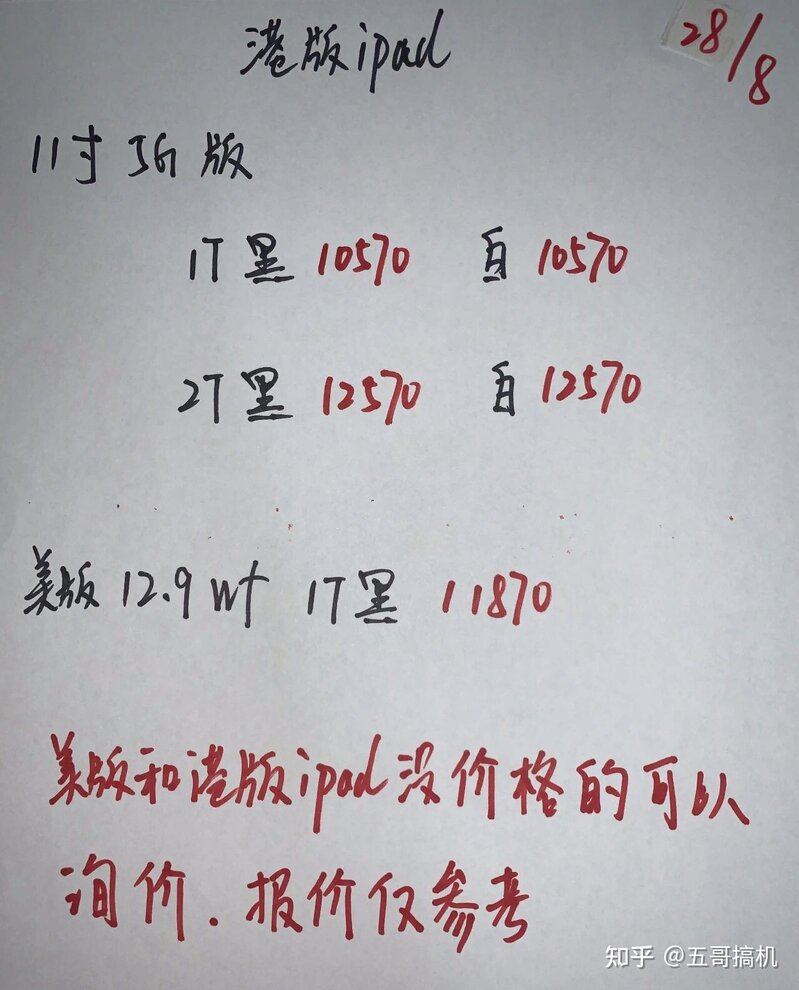 港版ipad
28/8
11寸 5G 版
1T 黑 10570 白 10570
2T 黑 12570 白 12570
美版 12.9 wf 1T 黑 11870
美版和港版ipad没价格的可以
询价.报价仅参考
知乎 @五哥搞机